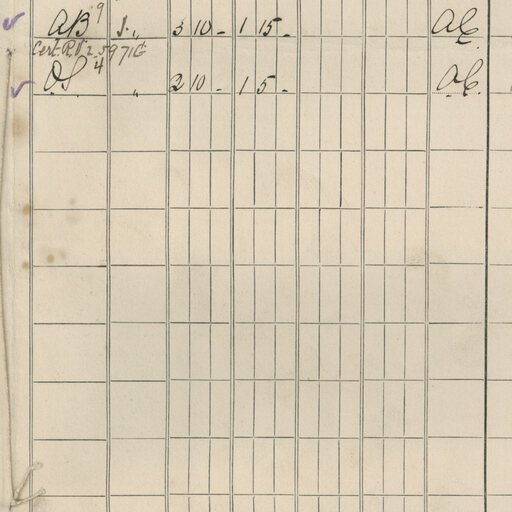 AB 9 S. „ 3 10 - 1 15 - A.C.
Cert. R.V.2. 59716
OS 4 „ 2 10 - 1 5 - A.C.